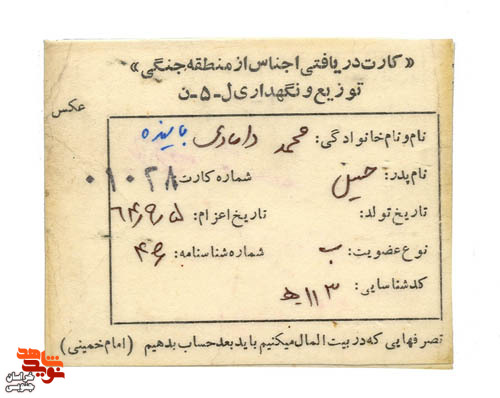 «کارت دریافتی اجناس از منطقه جنگی»
توزیع و نگهداری ل-۵-ن
عکس
نام و نام خانوادگی: محمد دامادی پاینده
نام پدر: حسین شماره کارت ۰۱۰۲۸
تاریخ تولد: تاریخ اعزام: ۶۴/۹/۵
نوع عضویت: ب شماره شناسنامه: ۴۶
کد شناسایی: ۱۱۳
تصرفهایی که در بیت المال میکنیم باید بعد حساب بدهیم (امام خمینی)
نوید شاهد
خراسان جنوبی